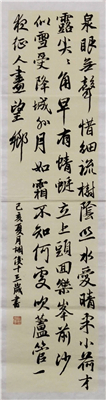 泉眼無聲惜細流樹蔭照水愛晴柔小荷才
露尖尖角早有蜻蜓立上頭回樂峯前沙
似雪受降城外月如霜不知何處吹蘆管一
夜征人盡望鄉
己亥夏月十三歲書